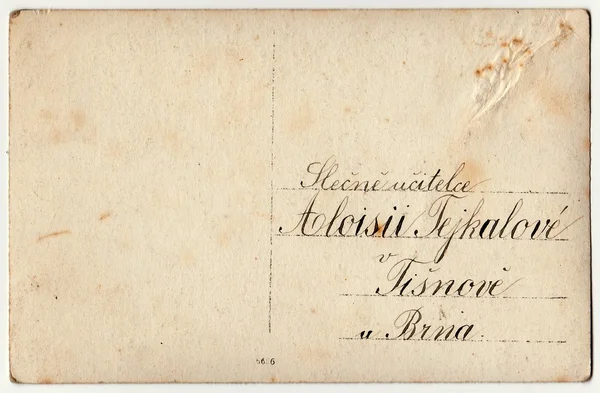 Slečně učitelce
Aloisii Tejkalové
v
Tišnově
u Brna.